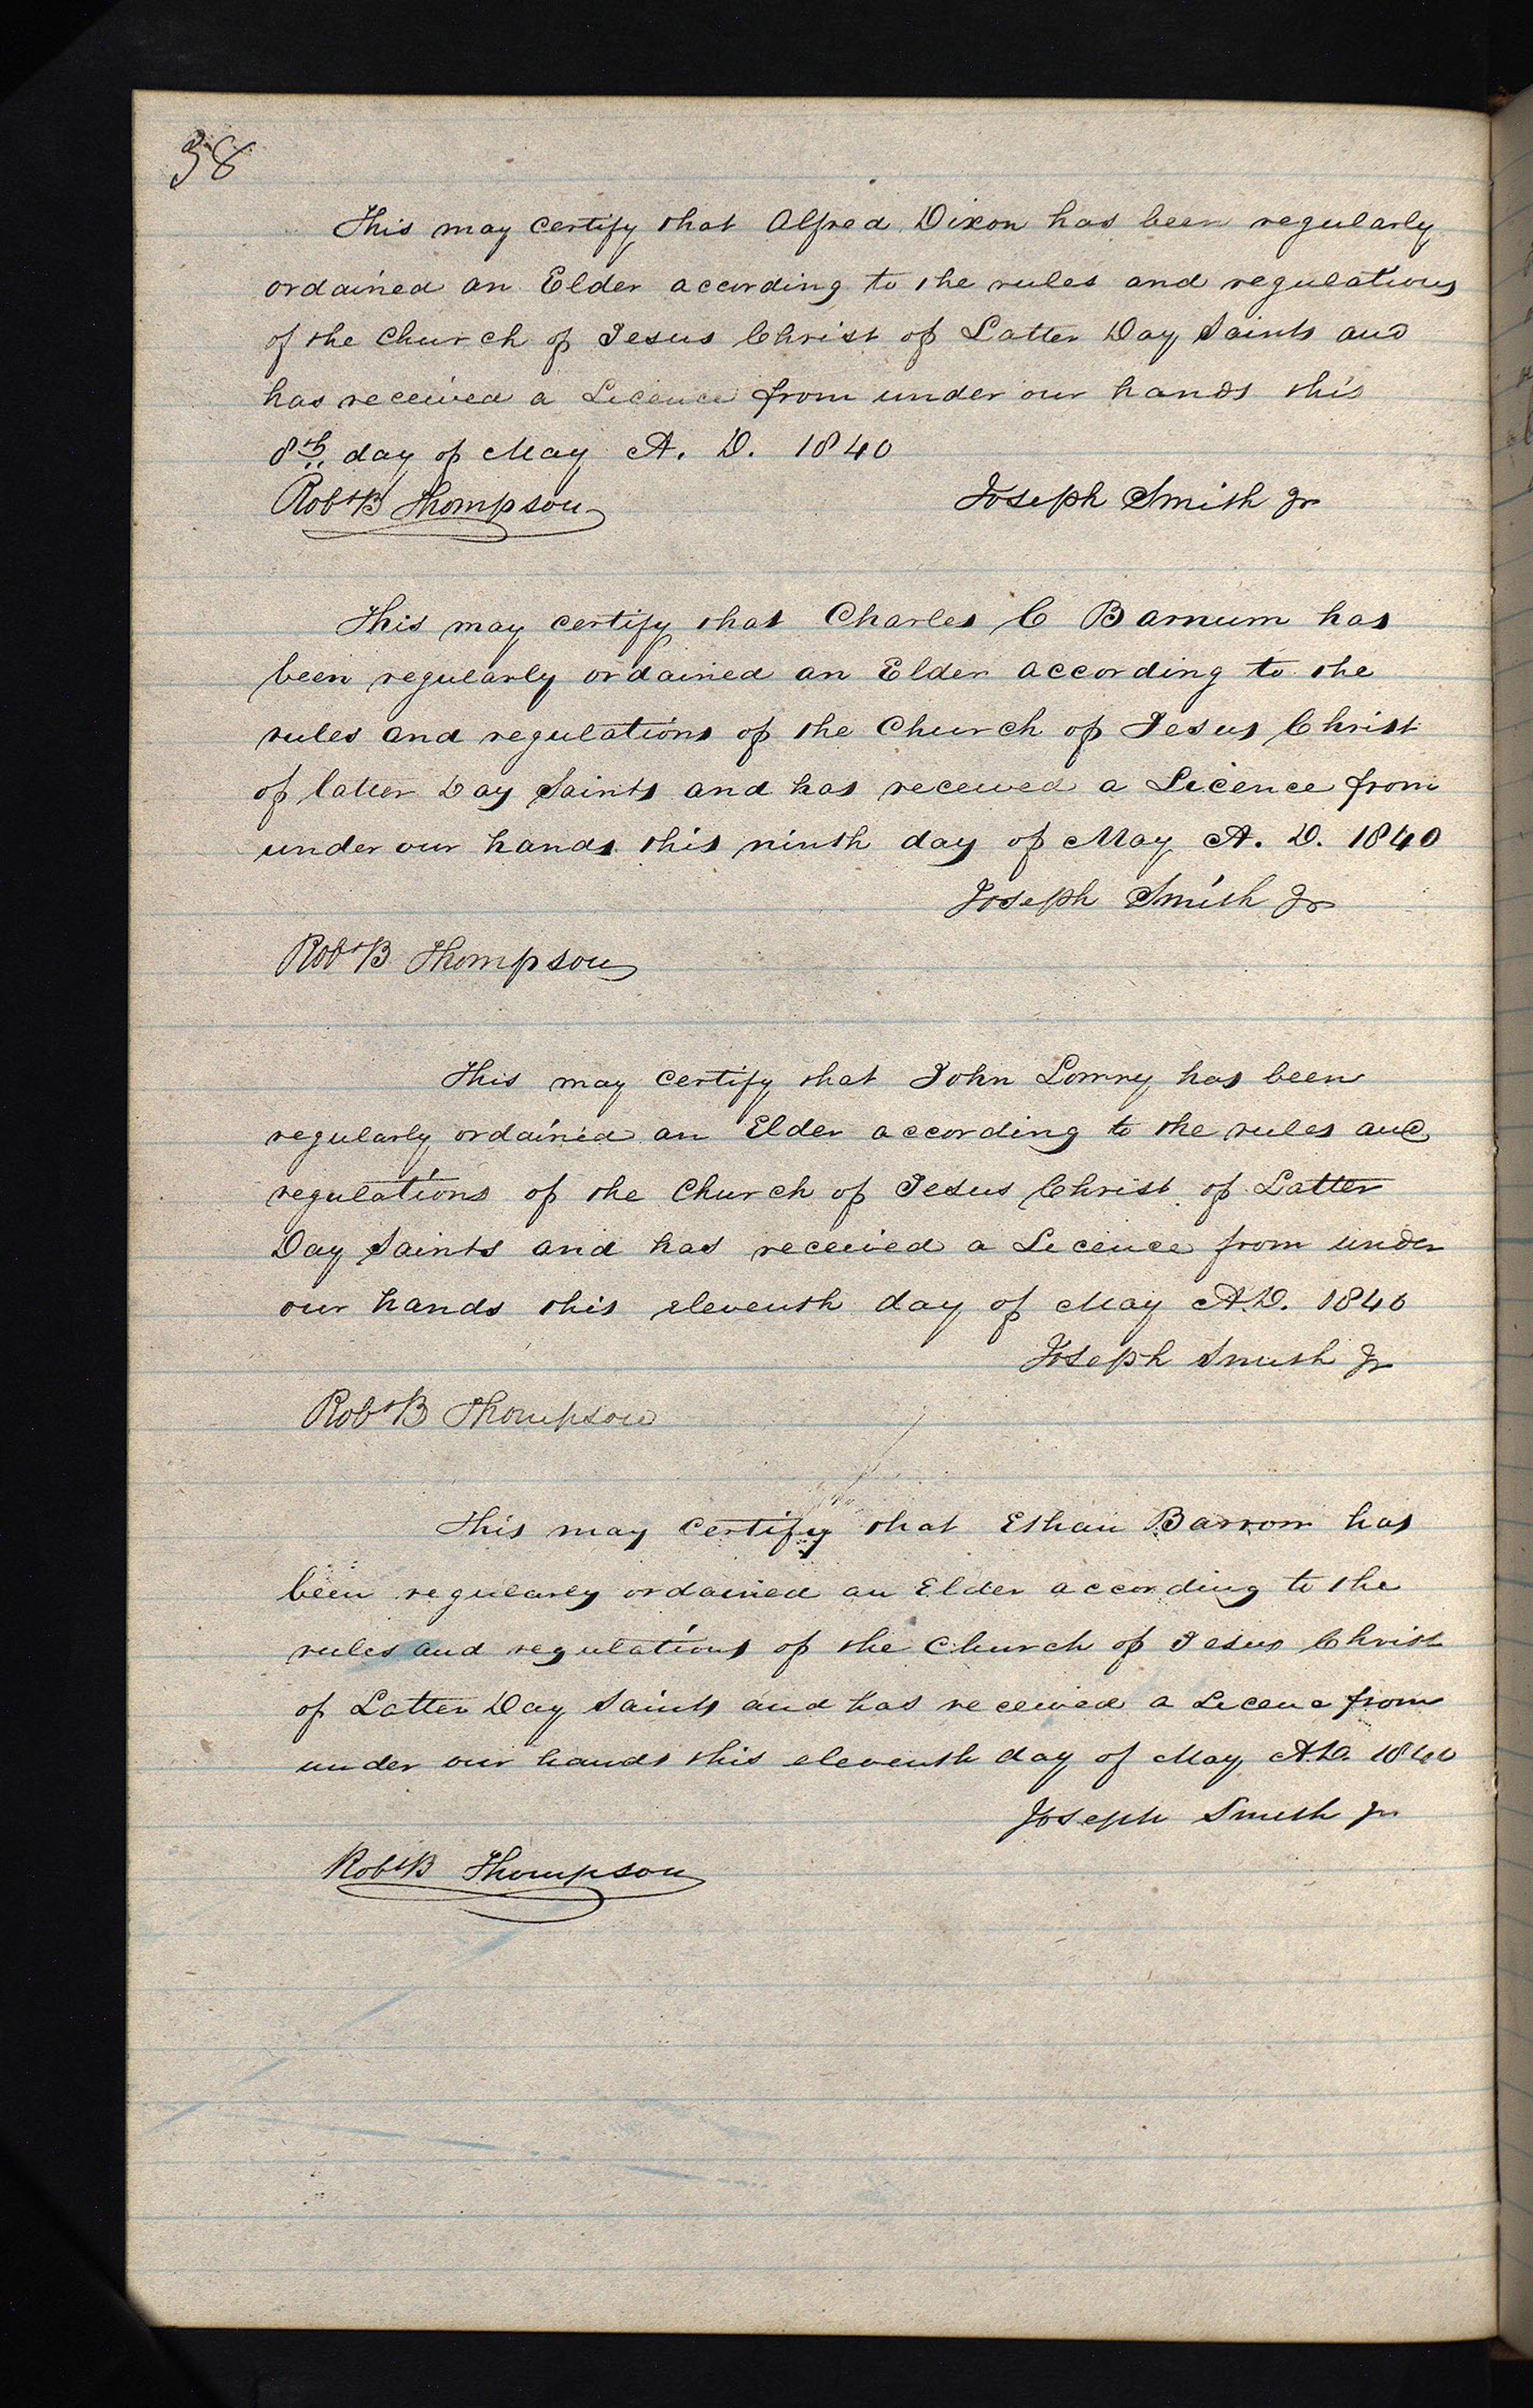 38
This may certify that Alfred Dixon has been regularly
ordained an Elder according to the rules and regulations
of the Church of Jesus Christ of Latter Day Saints and
has received a Licence from under our hands this
8th day of May A. D. 1840
Robt B Thompson Joseph Smith Jr
This may certify that Charles C Barnum has
been regularly ordained an Elder according to the
rules and regulations of the Church of Jesus Christ
of latter Day Saints and has received a Licence from
under our hands this ninth day of May A. D. 1840
Joseph Smith Jr
Robt B Thompson
This may certify that John Lowry has been
regularly ordained an Elder according to the rules and
regulations of the Church of Jesus Christ of Latter
Day Saints and has received a Licence from under
our hands this eleventh day of May A.D. 1840
Joseph Smith Jr
Robt B Thompson
This may certify that Ethan Barrom has
been regularly ordained an Elder according to the
rules and regulations of the Church of Jesus Christ
of Latter Day Saints and has received a Licenc from
under our hands this eleventh day of May A.D. 1840
Joseph Smith Jr
Robt B Thompson